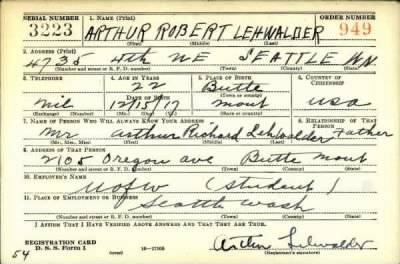 SERIAL NUMBER 1. NAME (Print) ORDER NUMBER
3223 ARTHUR ROBERT LEHWALDER 949
(First) (Middle) (Last)
2. ADDRESS (Print)
4735 4th NE SEATTLE WN
(Number and street or R. F. D. number) (Town) (County) (State)
3. TELEPHONE 4. AGE IN YEARS 5. PLACE OF BIRTH 6. COUNTRY OF CITIZENSHIP
22 Butte
DATE OF BIRTH (Town or county)
nil 12/15/17 mont USA
(Exchange) (Number) (Mo.) (Day) (Yr.) (State or country)
7. NAME OF PERSON WHO WILL ALWAYS KNOW YOUR ADDRESS 8. RELATIONSHIP OF THAT PERSON
Mr Arthur Richard Lehwalder Father
(Mr., Mrs., Miss) (First) (Middle) (Last)
9. ADDRESS OF THAT PERSON
2105 Oregon ave Butte Mont
(Number and street or R. F. D. number) (Town) (County) (State)
10. EMPLOYER'S NAME
U of W (Student)
11. PLACE OF EMPLOYMENT OR BUSINESS
Seattle Wash
(Number and street or R. F. D. number) (Town) (County) (State)
I AFFIRM THAT I HAVE VERIFIED ABOVE ANSWERS AND THAT THEY ARE TRUE.
REGISTRATION CARD
D. S. S. Form 1 16—17105 Arthur Lehwalder
(Registrant's signature)
54